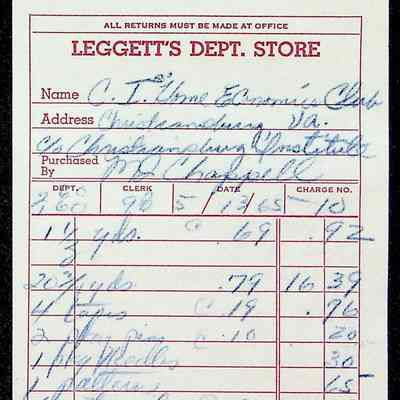 ALL RETURNS MUST BE MADE AT OFFICE
LEGGETT'S DEPT. STORE
Name C. I. Home Economics Club
Address Christiansburg Va.
c/o Christiansburg Institute
Purchased By
DEPT. CLERK DATE CHARGE NO.
260 98 5/13/65 -10
1 1/3 yds. @ .69 .92
20 3/4 yds .79 16 39
4 tapes @ .19 .76
2 pkg pins @ .10 20
1 pkg needles 30
1 pattern 65